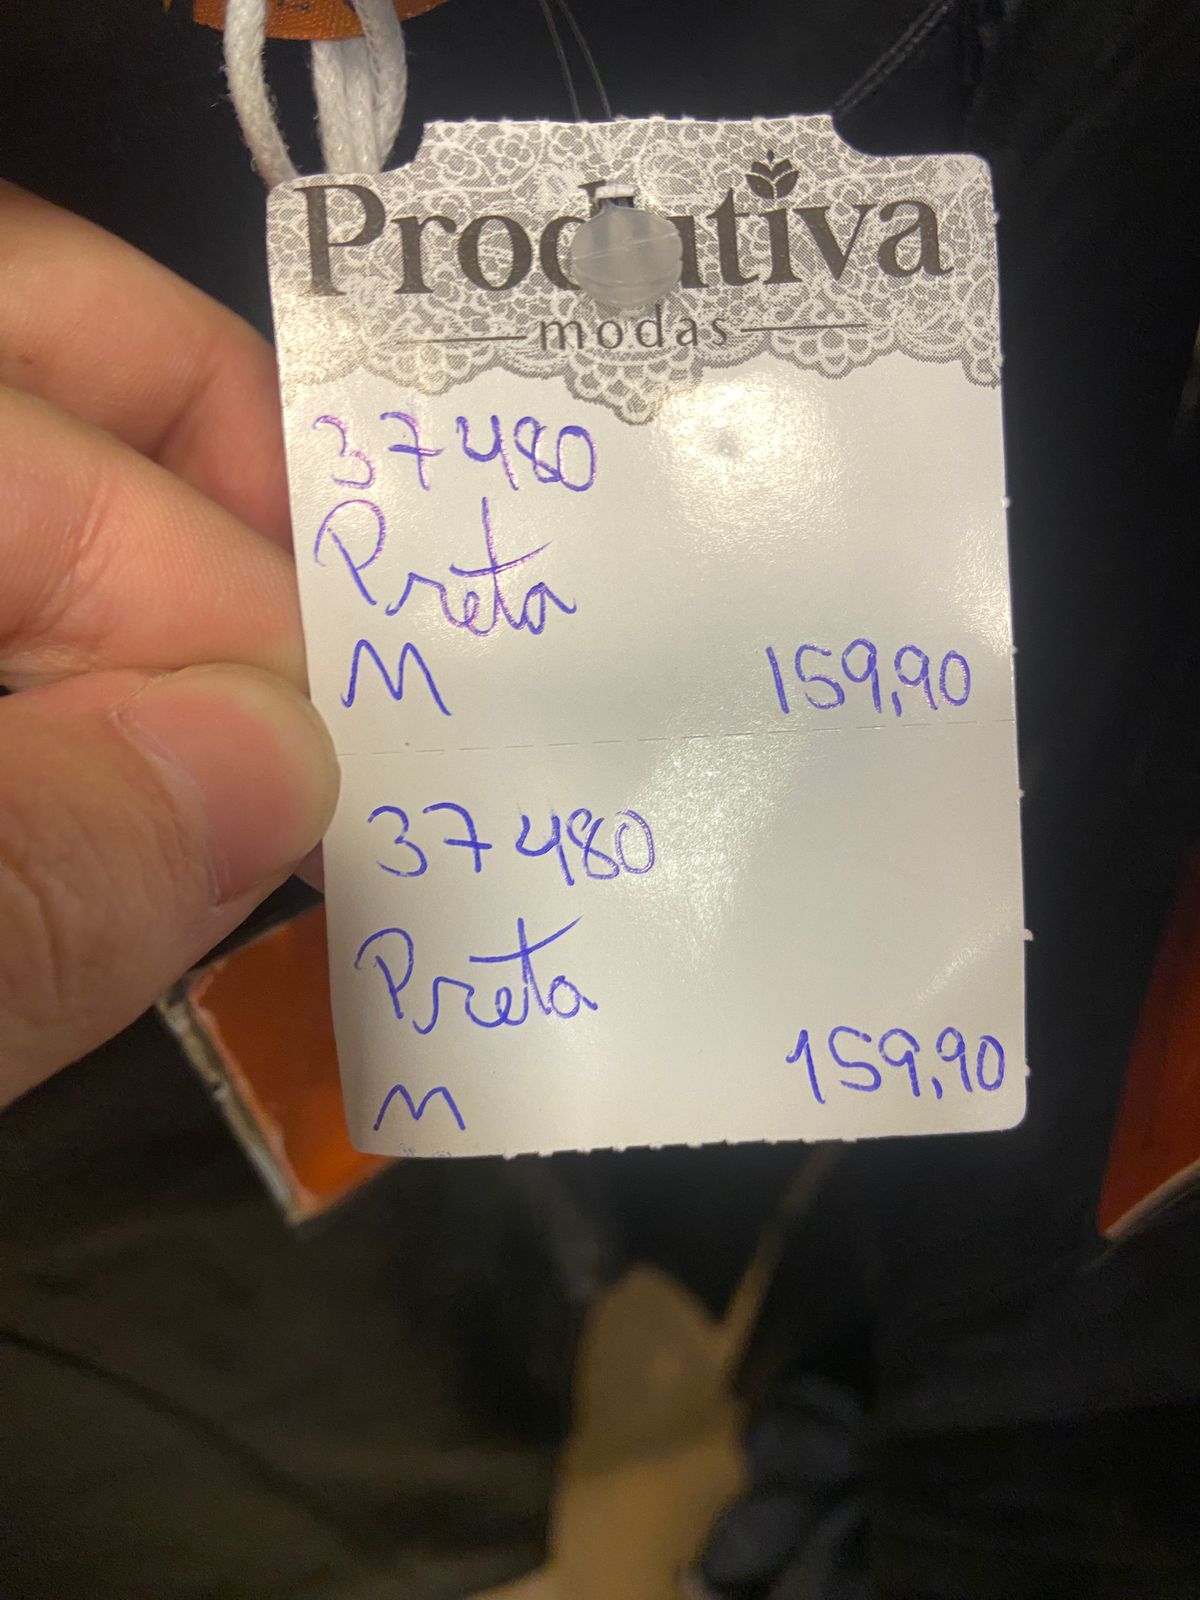 Produtiva
modas
37480
Preta
M 159,90
37480
Preta
M 159,90